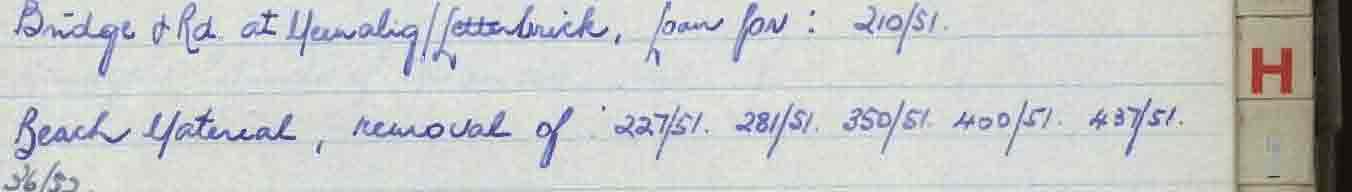 Bridge & Rd at Meenalig/Letterbrick, Loan for: 210/51.
Beach Material, removal of: 227/51. 281/51. 350/51. 400/51. 437/51.
36/52.
H